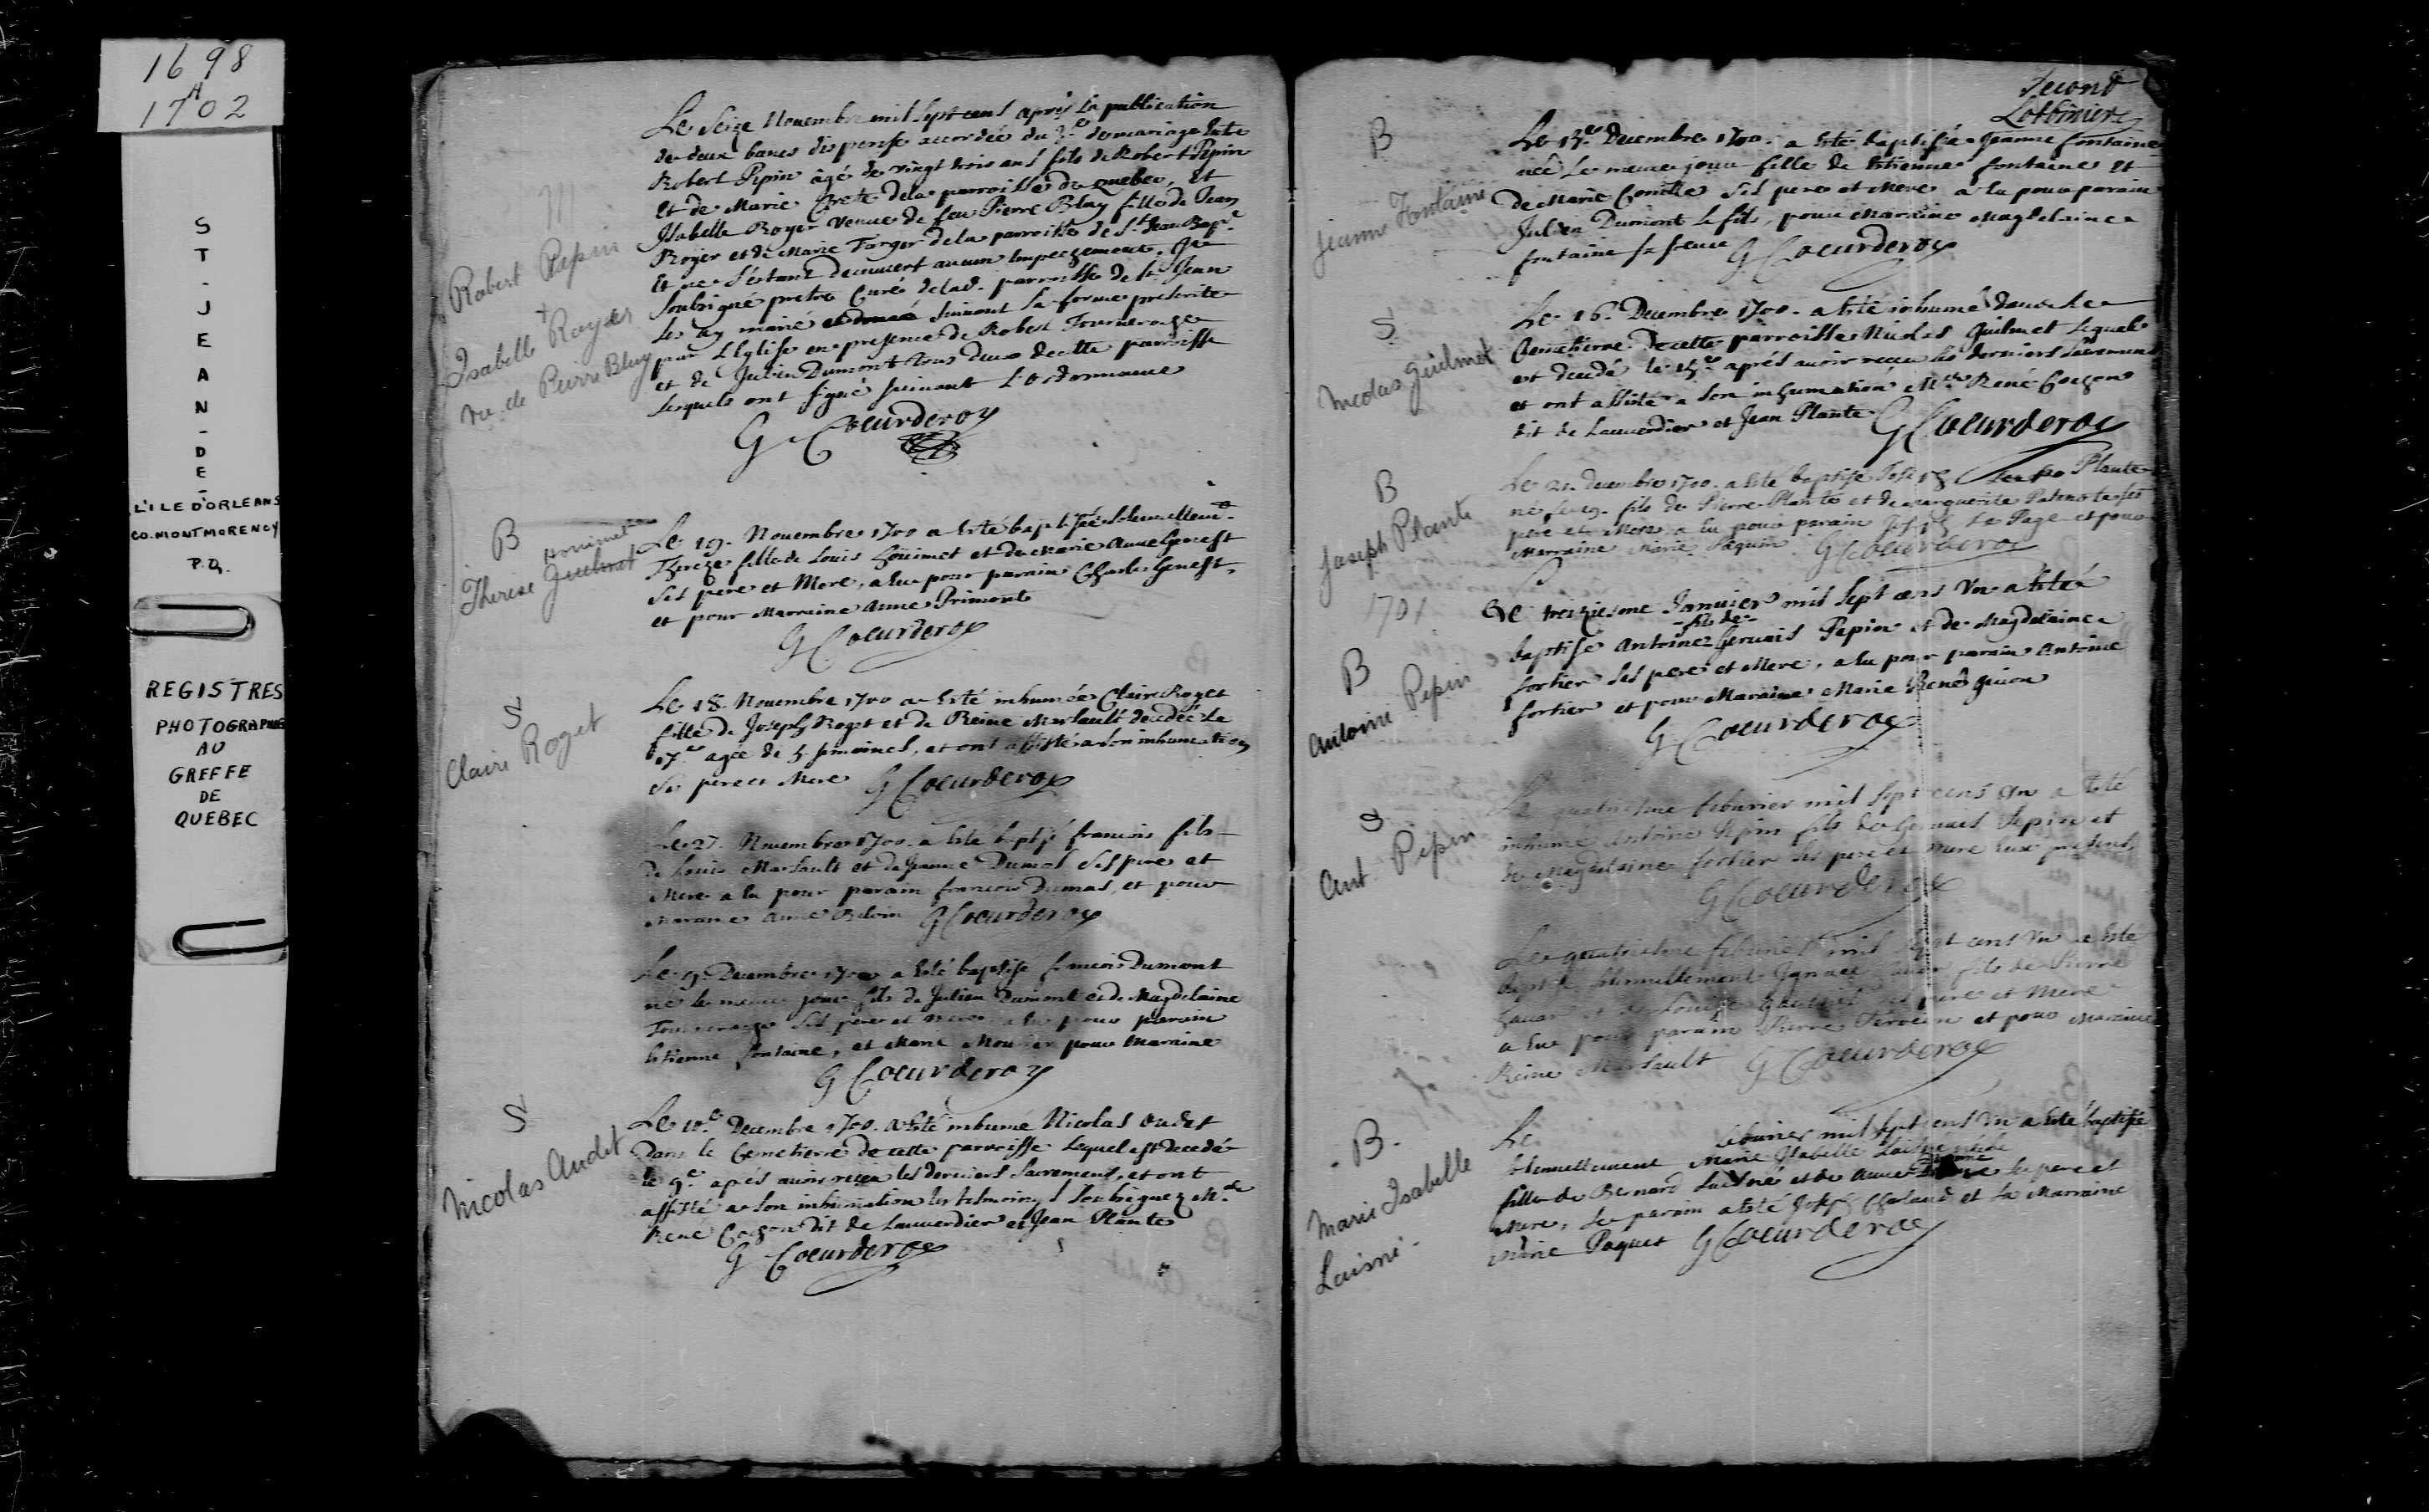 1698
A
1702
ST-JEAN-DE-
L'ILE D'ORLEANS
CO. MONTMORENCY
P.Q.
REGISTRES
PHOTOGRAPHIES
AU
GREFFE
DE
QUEBEC
M
Robert Pepin
+
Isabelle Royer
ve. de Pierre Bluy
Le Seize Nouembre mil sept cens après la publication
de deux bancs dispense accordée du 3e. de mariage entre
Robert Pepin âgé de vingt trois ans fils de Robert Pepin
et de Marie Crete de la parroisse de Quebec, et
Isabelle Royer veuue de feu Pierre Bluy fille de Jean
Royer et de Marie Targer de la parroisse de St Jean Bapt.
et ne s'estant decouuert aucun empeschement, Je
soubsigné pretre curé de lad. parroisse de St. Jean
les ay marié suiuant la forme prescrite
par L'Eglise en presence de Robert Tourneroche
et de Julien Dumont tous deux de cette parroisse
lesquels ont signé suiuant L'ordonnance
G Coeurderoy
B
Houimet
Therese Guilmet
Le 19. Nouembre 1700 a esté baptisée solemnellemt.
Thereze fille de Louis Houimet et de Marie Anne Genest
ses pere et Mere, a eu pour parain Charles Genest,
et pour Marraine Anne Primont
G Coeurderoy
S
Claire Roget
Le 18. Nouembre 1700 a esté inhumée Claire Roget
fille de Joseph Roget et de Reine Marsault decedée le
17e agée de 5 semaines, et ont assisté a son inhumation
ses pere et Mere G Coeurderoy
Le 27. Nouembre 1700. a esté baptisé francois fils
de Louis Marsault et de Jeanne Dumas ses pere et
Mere a eu pour parain francois Dumas, et pour
Maraine Anne Beloin G Coeurderoy
Le 9. Decembre 1700 a esté baptisé francois Dumont
né le meme jour fils de Julien Dumont et de Magdelaine
Tourneroche ses pere et mere a eu pour parain
Etienne fontaine, et Marie Mourier pour Maraine
G Coeurderoy
S
Nicolas Audet
Le 10e. Decembre 1700. a esté inhumé Nicolas Audet
Dans le Cemetierre de cette parroisse lequel est decedé
le 9e. après auoir receu les derniers sacremens, et ont
assisté a son inhumation les tesmoings soubsignez Mr. de
René Cochon dit de Lauuerdier et Jean Plante
G Coeurderoy
Second
Lotbiniere
B
Jeanne Fontaine
Le 13e. Decembre 1700. a esté baptisée Jeanne fontaine
née le meme jour fille de Etienne fontaine et
de Marie Conille ses pere et Mere a eu pour parain
Julien Dumont le fils, pour Maraine Magdelaine
fontaine sa soeur G Coeurderoy
S
Nicolas Guilmet
Le 16. Decembre 1700. a esté inhumé dans le
Cemetierre de cette parroisse Nicolas Guilmet lequel
est decedé le 15e après auoir receu les derniers sacremens
et ont assisté a son inhumation Mr. René Cochon
dit de Lauuerdier et Jean Plante G Coeurderoy
B
Joseph Plante
Le 21. decembre 1700. a esté baptisé Joseph Plante
né le 19. fils de Pierre Plante et de Marguerite Patenotre ses
pere et Mere, a eu pour parain Joseph Le Page et pour
Marraine Marie Paquin G Coeurderoy
1701
B
Antoine Pepin
Le treiziesme Januier mil sept cens Vn a esté
- fils de -
baptisé Antoine Geruais Pepin et de Magdelaine
fortier ses pere et Mere, a eu pour parain Antoine
fortier et pour Maraine Marie René guion
G Coeurderoy
S
Ant. Pepin
Le quatriesme feburier mil sept cens Vn a esté
inhumé Antoine Pepin fils de Geruais Pepin et
de Magdelaine fortier ses pere et mere eux presents
G Coeurderoy
Le quatriesme feburier mil sept cens Vn a esté
baptisé solemnellement Ignace fils de Pierre
et de Louise ses pere et Mere
a eu pour parain Pierre Terrien et pour Maraine
Reine Marsault G Coeurderoy
- B -
Marie Isabelle
Laisné -
Le feburier mil sept cens Vn a esté baptisée
solemnellement Marie Isabelle Laisné
fille de Bernard Laisné et de Anne Dionne ses pere et
Mere, Le parain a esté Joseph Charland et la Marraine
Marie Paquet G Coeurderoy